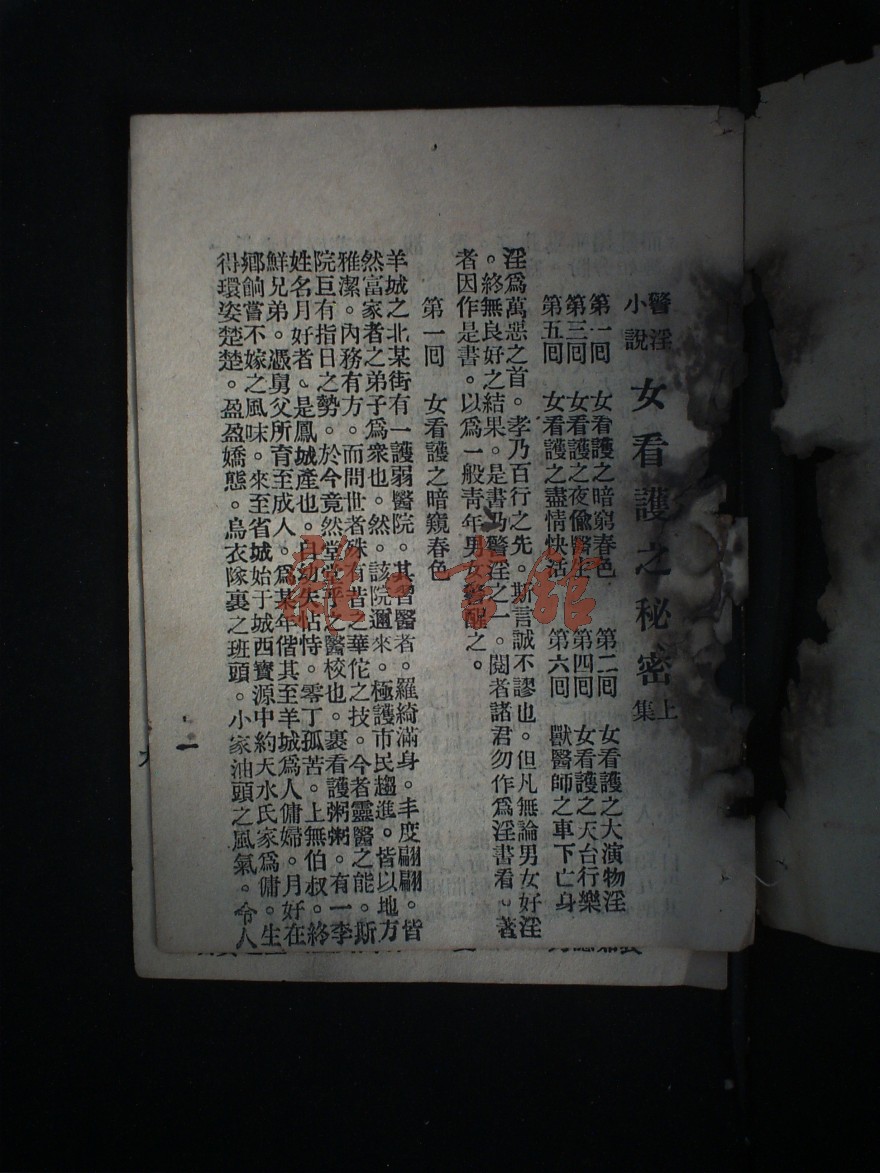 警淫小說 女看護之秘密 上集
第一回 女看護之暗窮春色 第二回 女看護之大演物淫
第三回 女看護之夜偸醫士 第四回 女看護之天台行樂
第五回 女看護之盡情快活 第六回 獸醫師之車下亡身
淫爲萬惡之首。孝乃百行之先。斯言誠不謬也。但凡無論男女好淫
。終無良好之結果。是書乃警淫之一。閱者諸君勿作爲淫書看。著
者因作是書。以爲一般靑年男女警醒之。
第一回 女看護之暗窺春色
羊城之北某街有一護弱醫院。其習醫者。羅綺滿身。丰度翩翩。皆
然富家者之弟子爲衆也。然。該院邇來。極護市民趨進。皆以地方
雅潔。內務有方。而問世者殊有昔之華佗之技。今者靈醫之能。斯
院巨有指日之勢。於今竟然堂堂乎之醫校也。裏看護粥粥。有一李
姓名月好者。是鳳城產也。自幼失怙恃。零丁孤苦。上無伯叔。終
鮮兄弟。憑舅父所育至成人。爲某年偕其至羊城爲人傭婦。月好在
鄕餉嘗不嫁之風味。來至省城始于城西寶源中約天水氏家爲傭。生
得環姿楚楚。盈盈嬌態。烏衣隊裏之班頭。小家油頭之風氣。令人
一
雜·書館